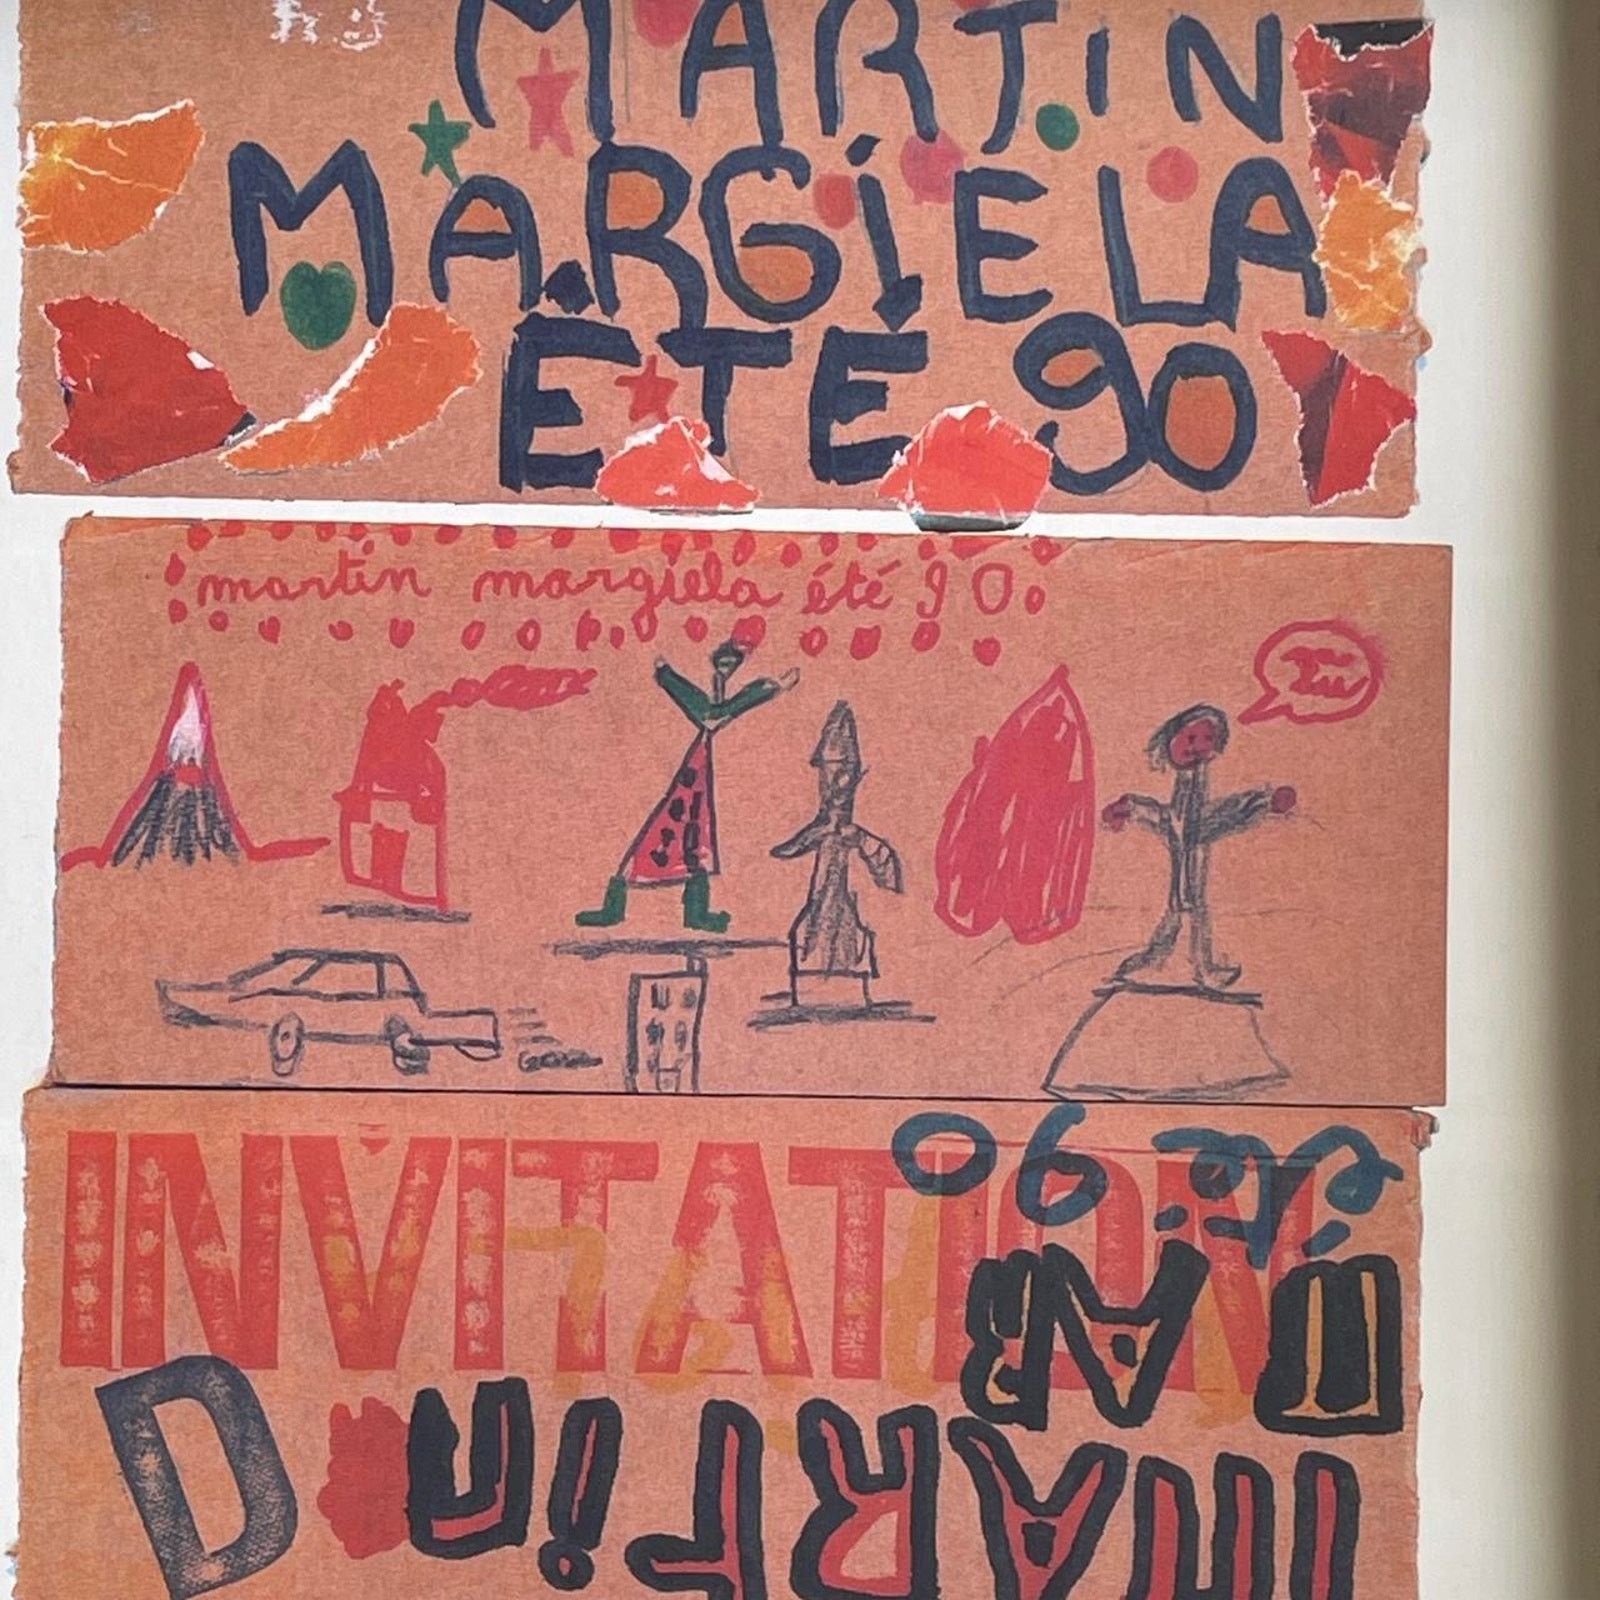 MARTiN
MARGiELA
ÉTÉ 90
martin margiela été 90
INVITATION
été 90
D
MARTin